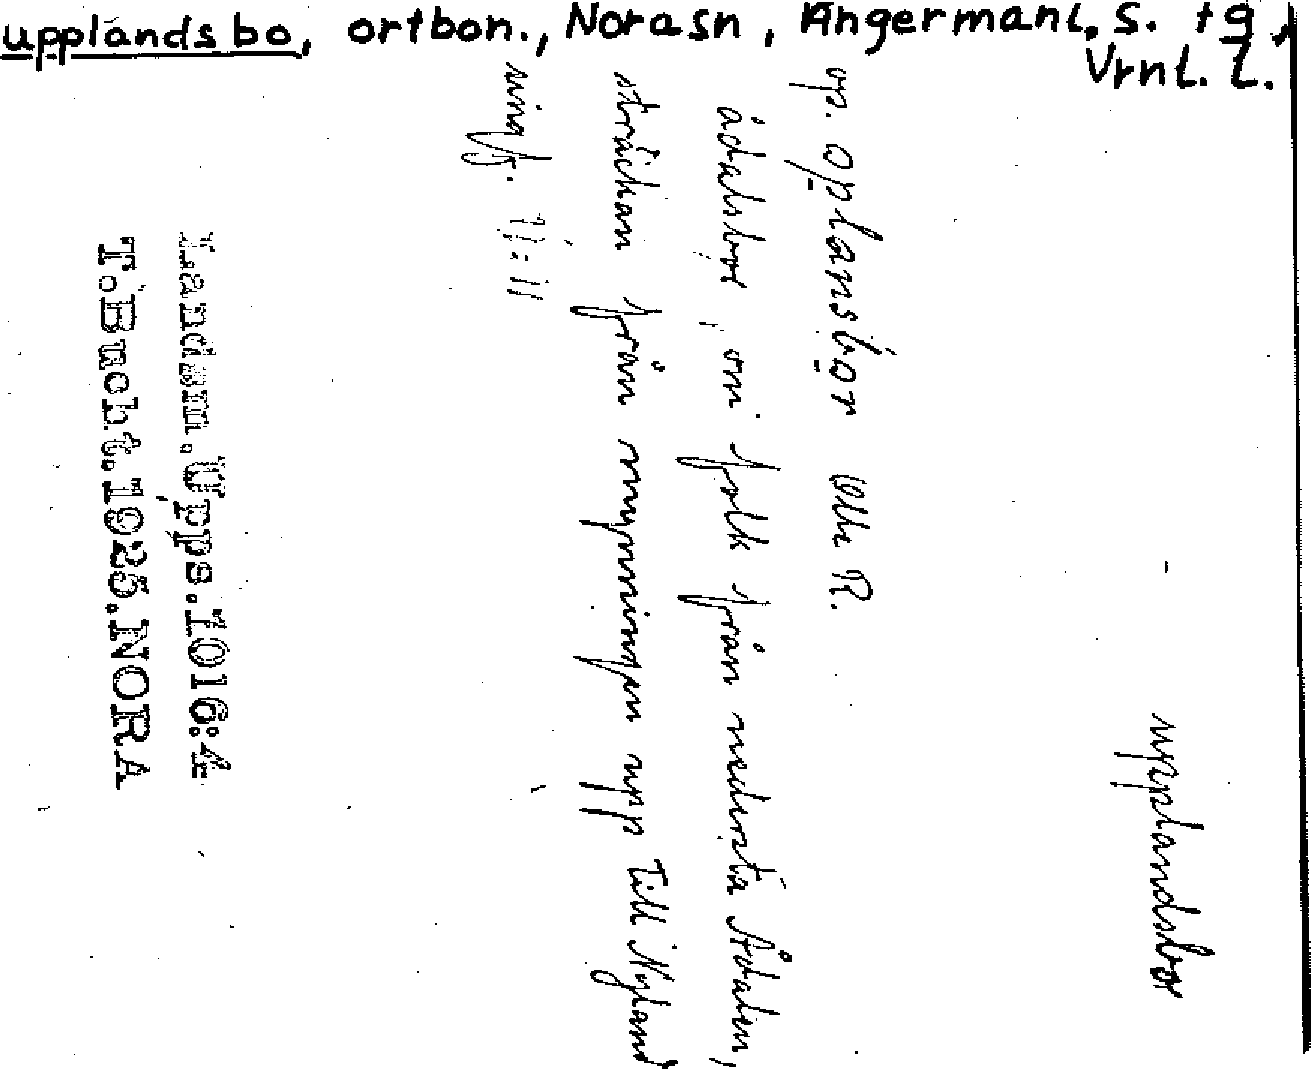 upplandsbo, ortbon., Nora sn, Ångermanl. s. tg,
Vrnl. l.
upplandsbor
op. oplansbor
ådalsbor, om folk från nedersta Ådalen,
sträckan från mynningen upp till Nyland
ungf.
Landsm. Upps. 1016:4
T. Bucht. 1925. NORA